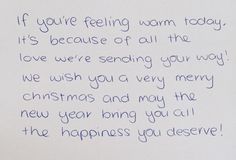 If you're feeling warm today,
it's because of all the
love we're sending your way!
We wish you a very merry
christmas and may the
new year bring you all
the happiness you deserve!